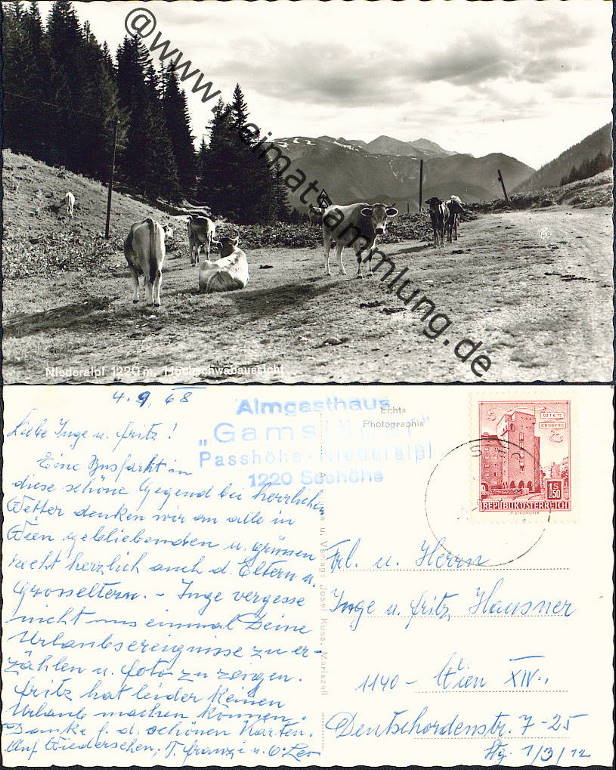 @www.heimatsammlung.de
Niederalpl 1220 m, Hochschwabaussicht
4.9.68
Almgasthaus
Passhöhe-Niederalpl
1220 Seehöhe
Echte
Photographie
150
REPUBLIK ÖSTERREICH
Liebe Inge u. Fritz!
Eine Ausfahrt in
diese schöne Gegend bei herrlichen
Wetter denken wir an alle in
Wien gebliebenden u. Grüssen
recht herzlich auch d. Eltern u.
Grosseltern. - Inge vergesse
nicht uns einmal Deine
Urlaubsereignisse zu er-
zählen u. Foto zu zeigen.
Fritz hat leider keinen
Urlaub machen können.
Danke f. d. schönen Karten.
Auf Wiedersehen, T. Franzi u. O. Leo
u. Verlag: Josef Kuss, Mariazell
Frl. u. Herrn
Inge u. Fritz Hausner
1140 - Wien XIV.,
Deutschordenstr. 7-25
Stg. 1/3/12